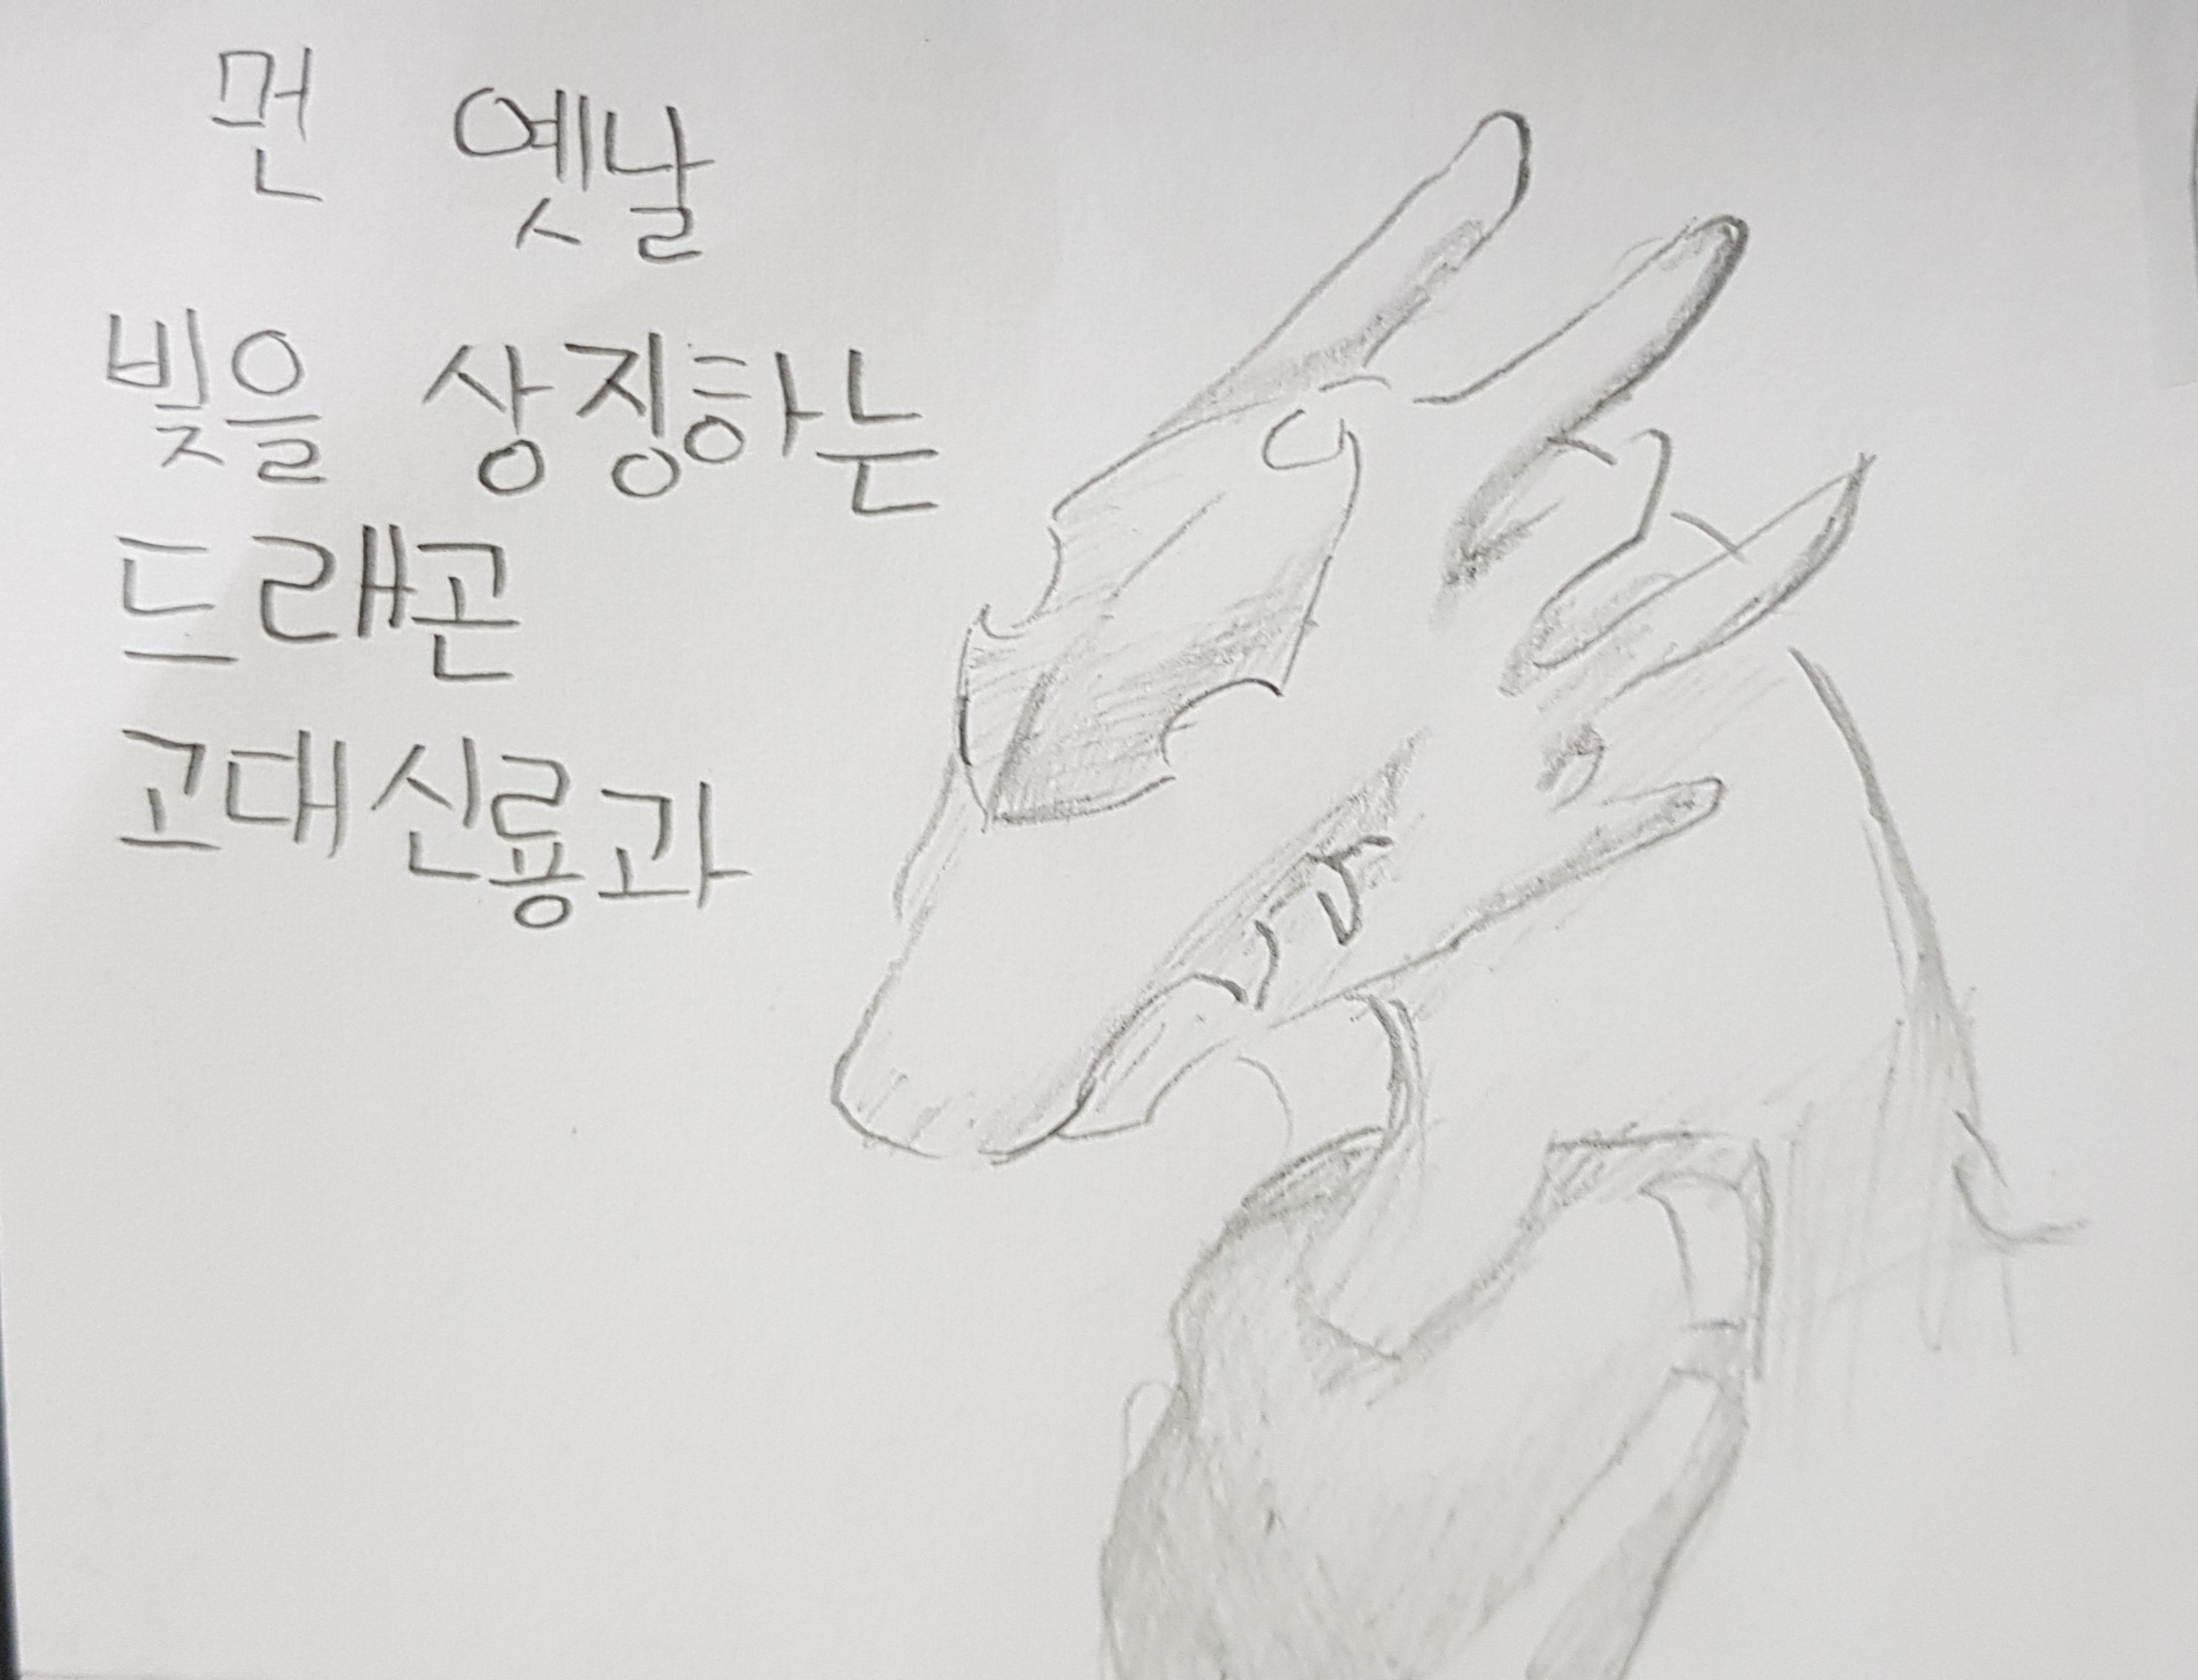 먼 옛날
빛을 상징하는
드래곤
고대신룡과